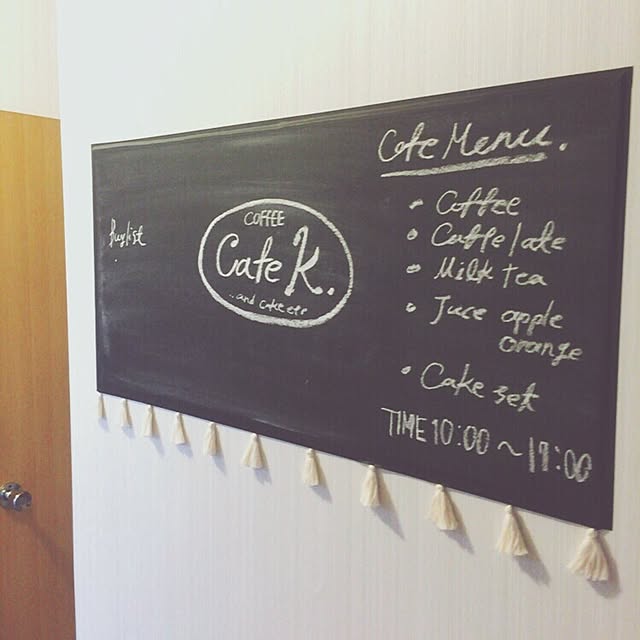 Buylist
COFFEE
Cafe K.
..and cake etc
Cafe Menu.
• Coffee
• Caffe late
• Milk tea
• Juce apple
orange
• Cake set
TIME 10:00~17:00